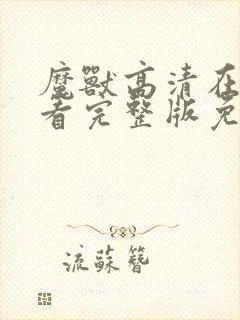 魔獸高清在
看完整版免
流蘇簪